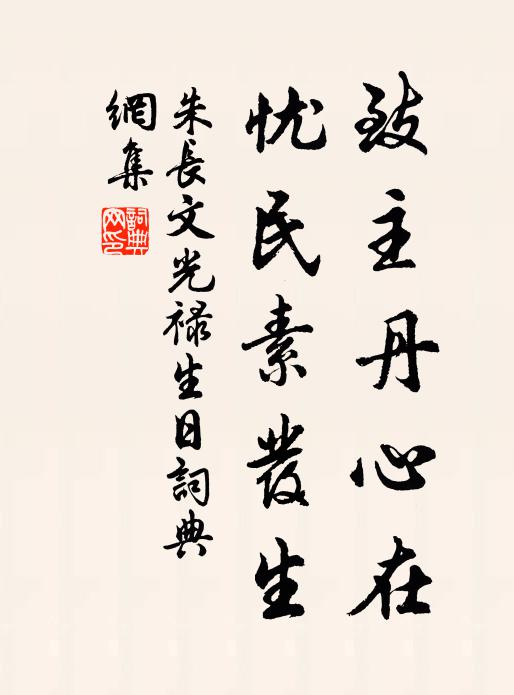 致主丹心在
忧民素發生
朱長文光禄生日詞典
網集
詞典網印